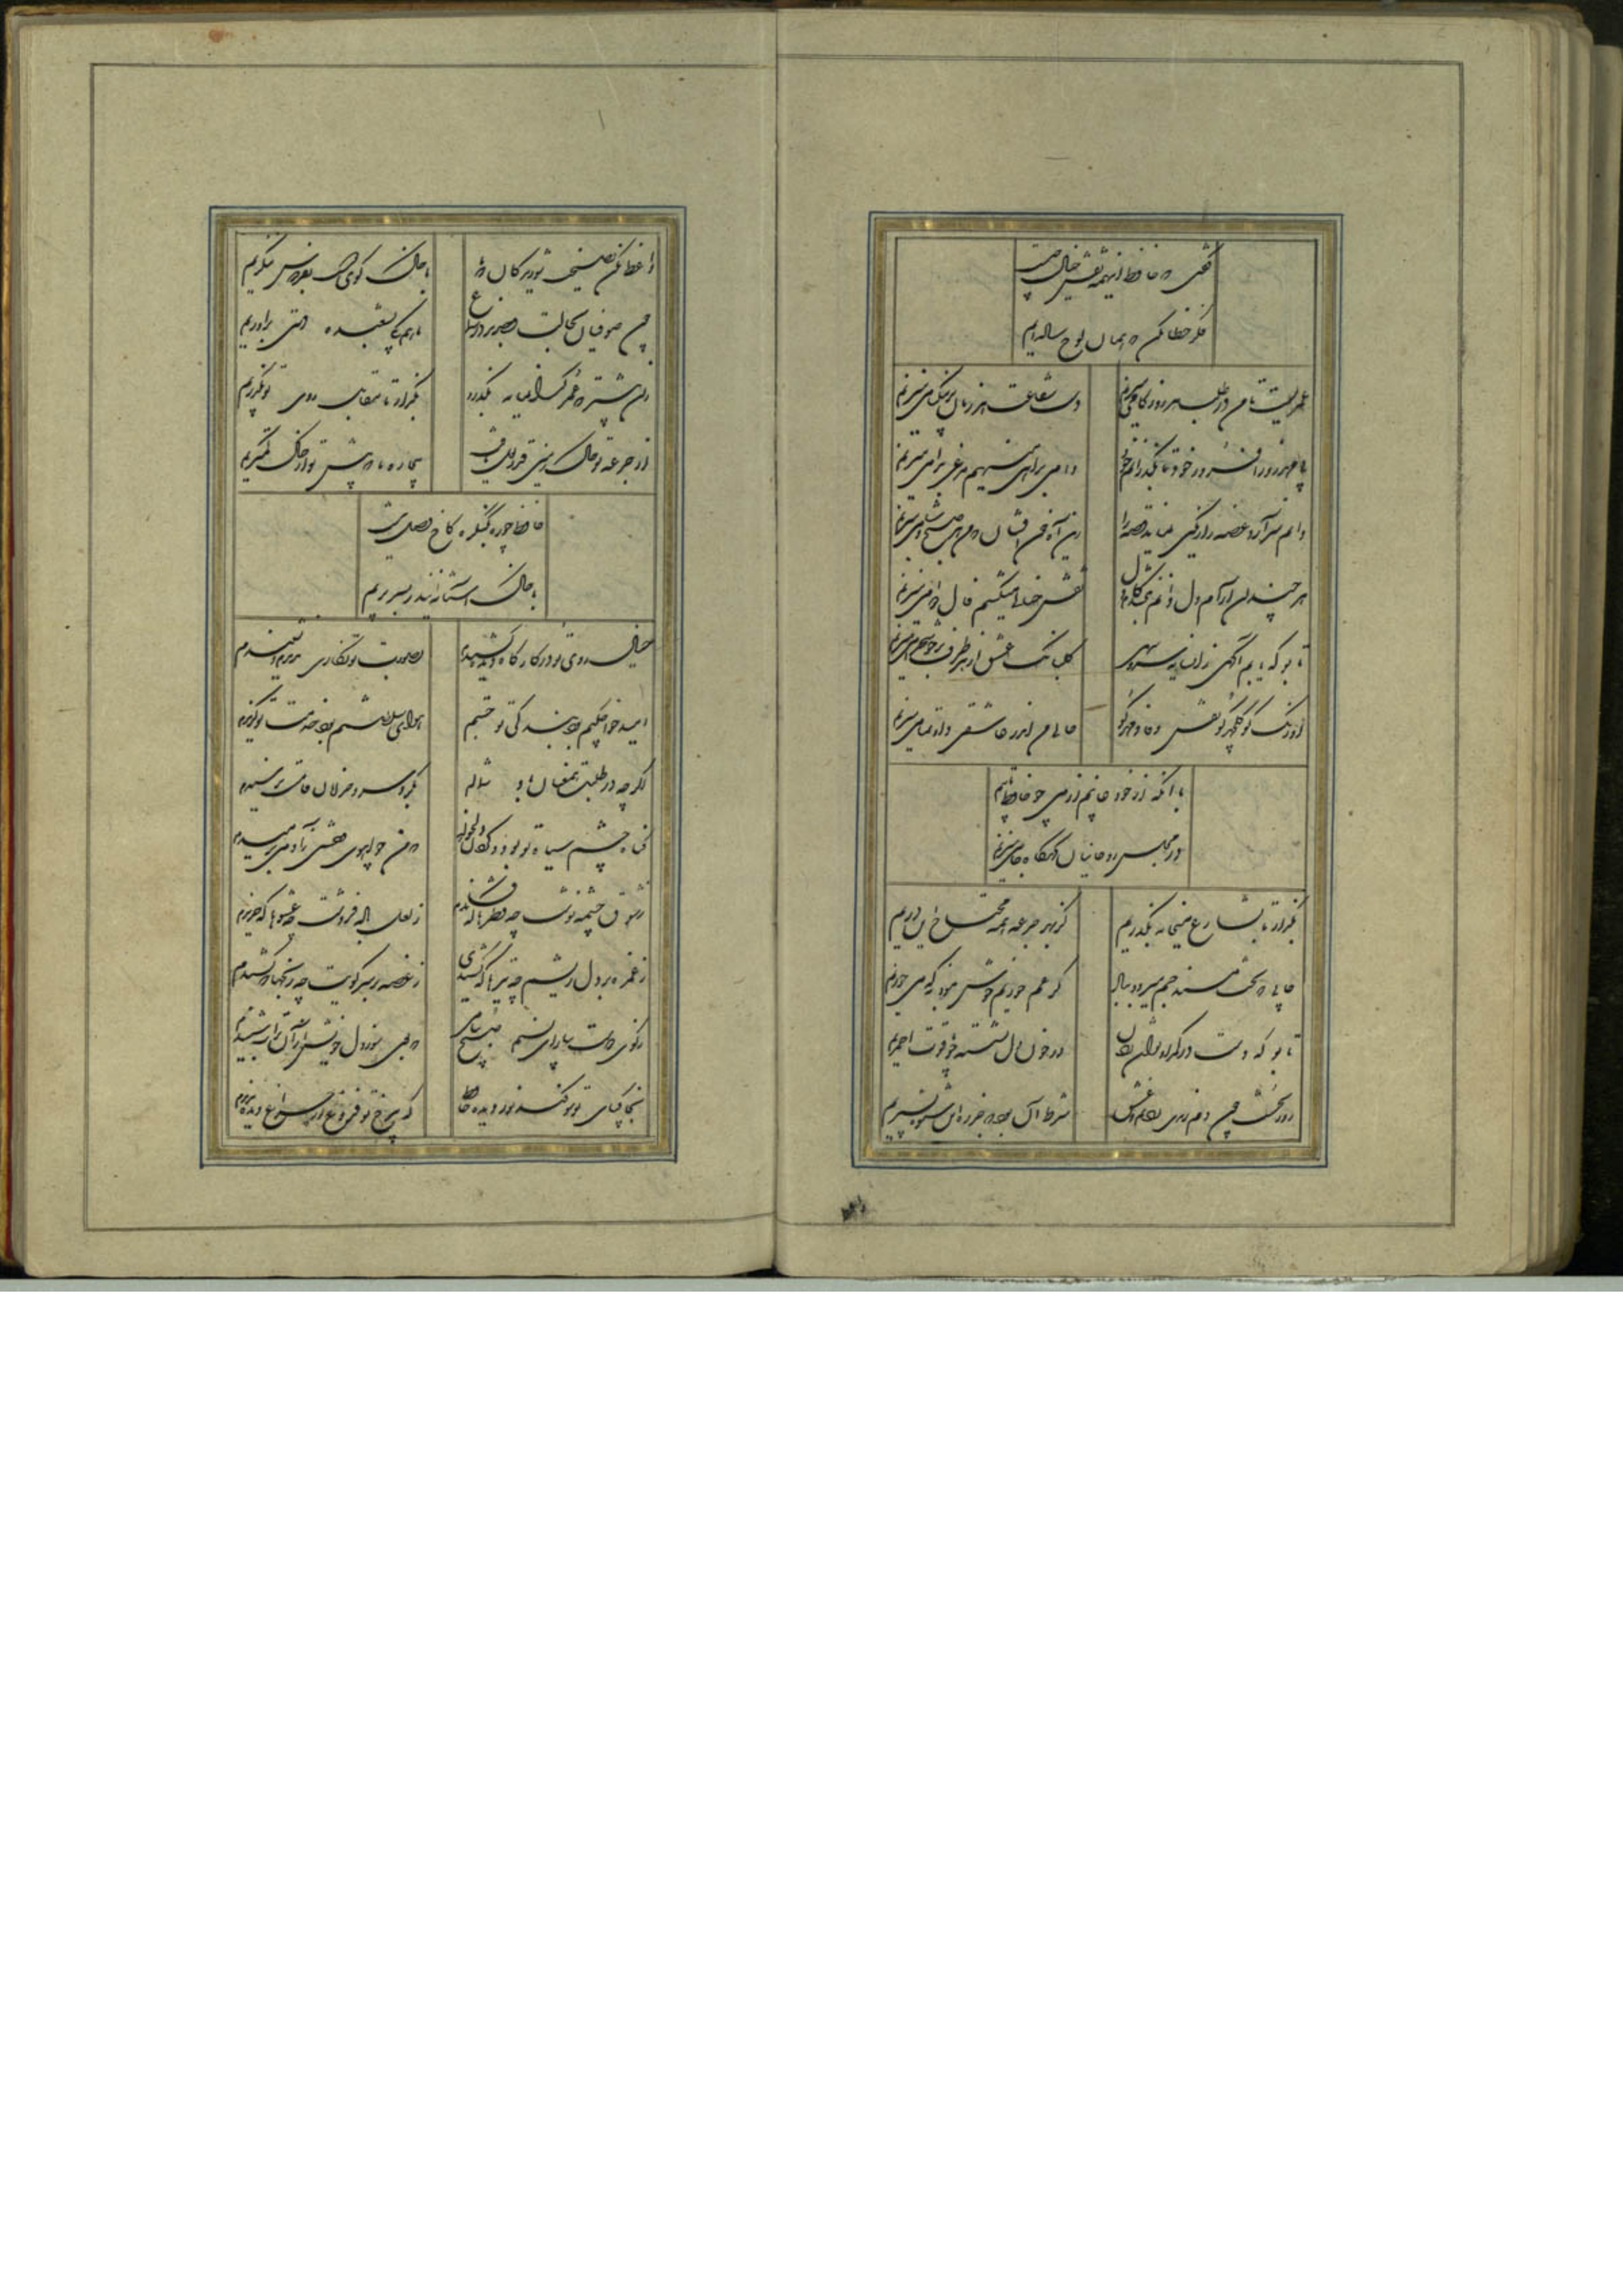 گفتی که حافظ اینهمه نقش خیال چیست
فکر خطا مکن که همان لوح ساده‌ایم
عمریست تا من در طلب هر روز گامی میزنم دست شفاعت هر زمان در نیک نامی میزنم
بی مهر افروز خود تا بگذرانم روز خود دامی براهی مینهم مرغی بدامی میزنم
دانم سر آرد غصه را رنگین نماید قصه را این آه خون افشان که من هر صبح و شامی میزنم
هر چند کان آرام دل دانم نبخشد کام دل نقش خیالی میکشم فال دوامی میزنم
تا بو که یابم آگهی زان سایه سرو سهی گلبانگ عشق از هر طرف بر خوشخرامی میزنم
اورنگ کو گلچهر کو نقش وفا و مهر کو حالی من اندر عاشقی داو تمامی میزنم
با آنکه از خود غایبم از می چو حافظ تایبم
در مجلس روحانیان گهگاه جامی میزنم
بگذار تا بشارع میخانه بگذریم کز بهر جرعه همه محتاج این دریم
جایی که تخت و مسند جم میرود بباد گر غم خوریم خوش نبود به که می خوریم
تا بو که دست در کمر او توان زدن در خون دل نشسته چو یاقوت احمریم
روز نخست چون دم رندی زدیم و عشق شرط آن بود که جز ره این شیوه نسپریم
واعظ مکن نصیحت شوریدگان که ما با خاک کوی دوست بفردوس ننگریم
چون صوفیان بحالت رقصند در سماع ما هم بشعبده دستی برآوریم
زان پیشتر که عمر گرانمایه بگذرد بگذار تا مقابل روی تو بگذریم
از جرعه تو خاک زمین قدر لعل یافت بیچاره ما که پیش تو از خاک کمتریم
حافظ چو ره بکنگره کاخ وصل نیست
با خاک آستانه این در بسر بریم
خیال روی تو در کارگاه دیده کشیدم بصورت تو نگاری ندیدم و نشنیدم
امید خواجگیم بود بندگی تو جستم هوای سلطنتم بود خدمت تو گزیدم
اگر چه در طلبت همعنان باد شمالم بگرد سرو خرامان قامتت نرسیدم
گناه چشم سیاه تو بود و گردن دلخواه که من چو آهوی وحشی ز آدمی برمیدم
ز شوق چشمه نوشت چه قطره‌ها که فشاندم ز لعل باده فروشت چه عشوها که خریدم
ز غمزه بر دل ریشم چه تیرها که گشادی ز غصه بر سر کویت چه رنجها که کشیدم
ز کوی دوست بیار ای نسیم صبح پیامی که بوی خون دل خویش از آن تراب شنیدم
بخاکپای تو سوگند و نور دیده حافظ که بی رخ تو فروغ از چراغ دیده ندیدم